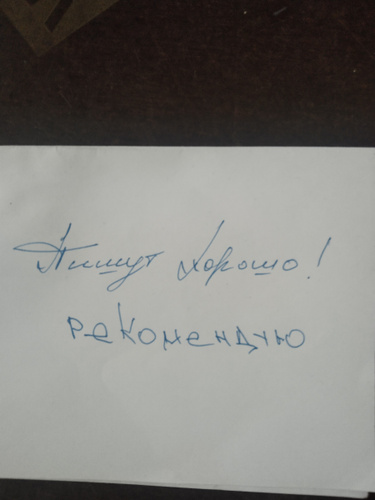 Пишут хорошо!
рекомендую